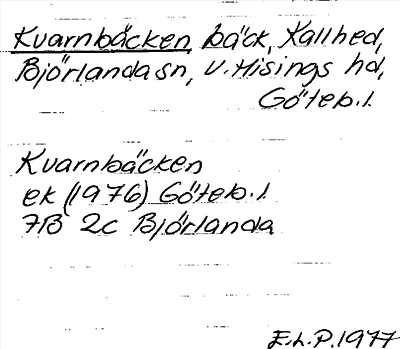 Kvarnbäcken, bäck, Kallhed,
Björlanda sn, V. Hisings hd,
Göteb. l.
Kvarnbäcken
ek (1976) Göteb. l.
7B 2c Björlanda
E.L.P. 1977